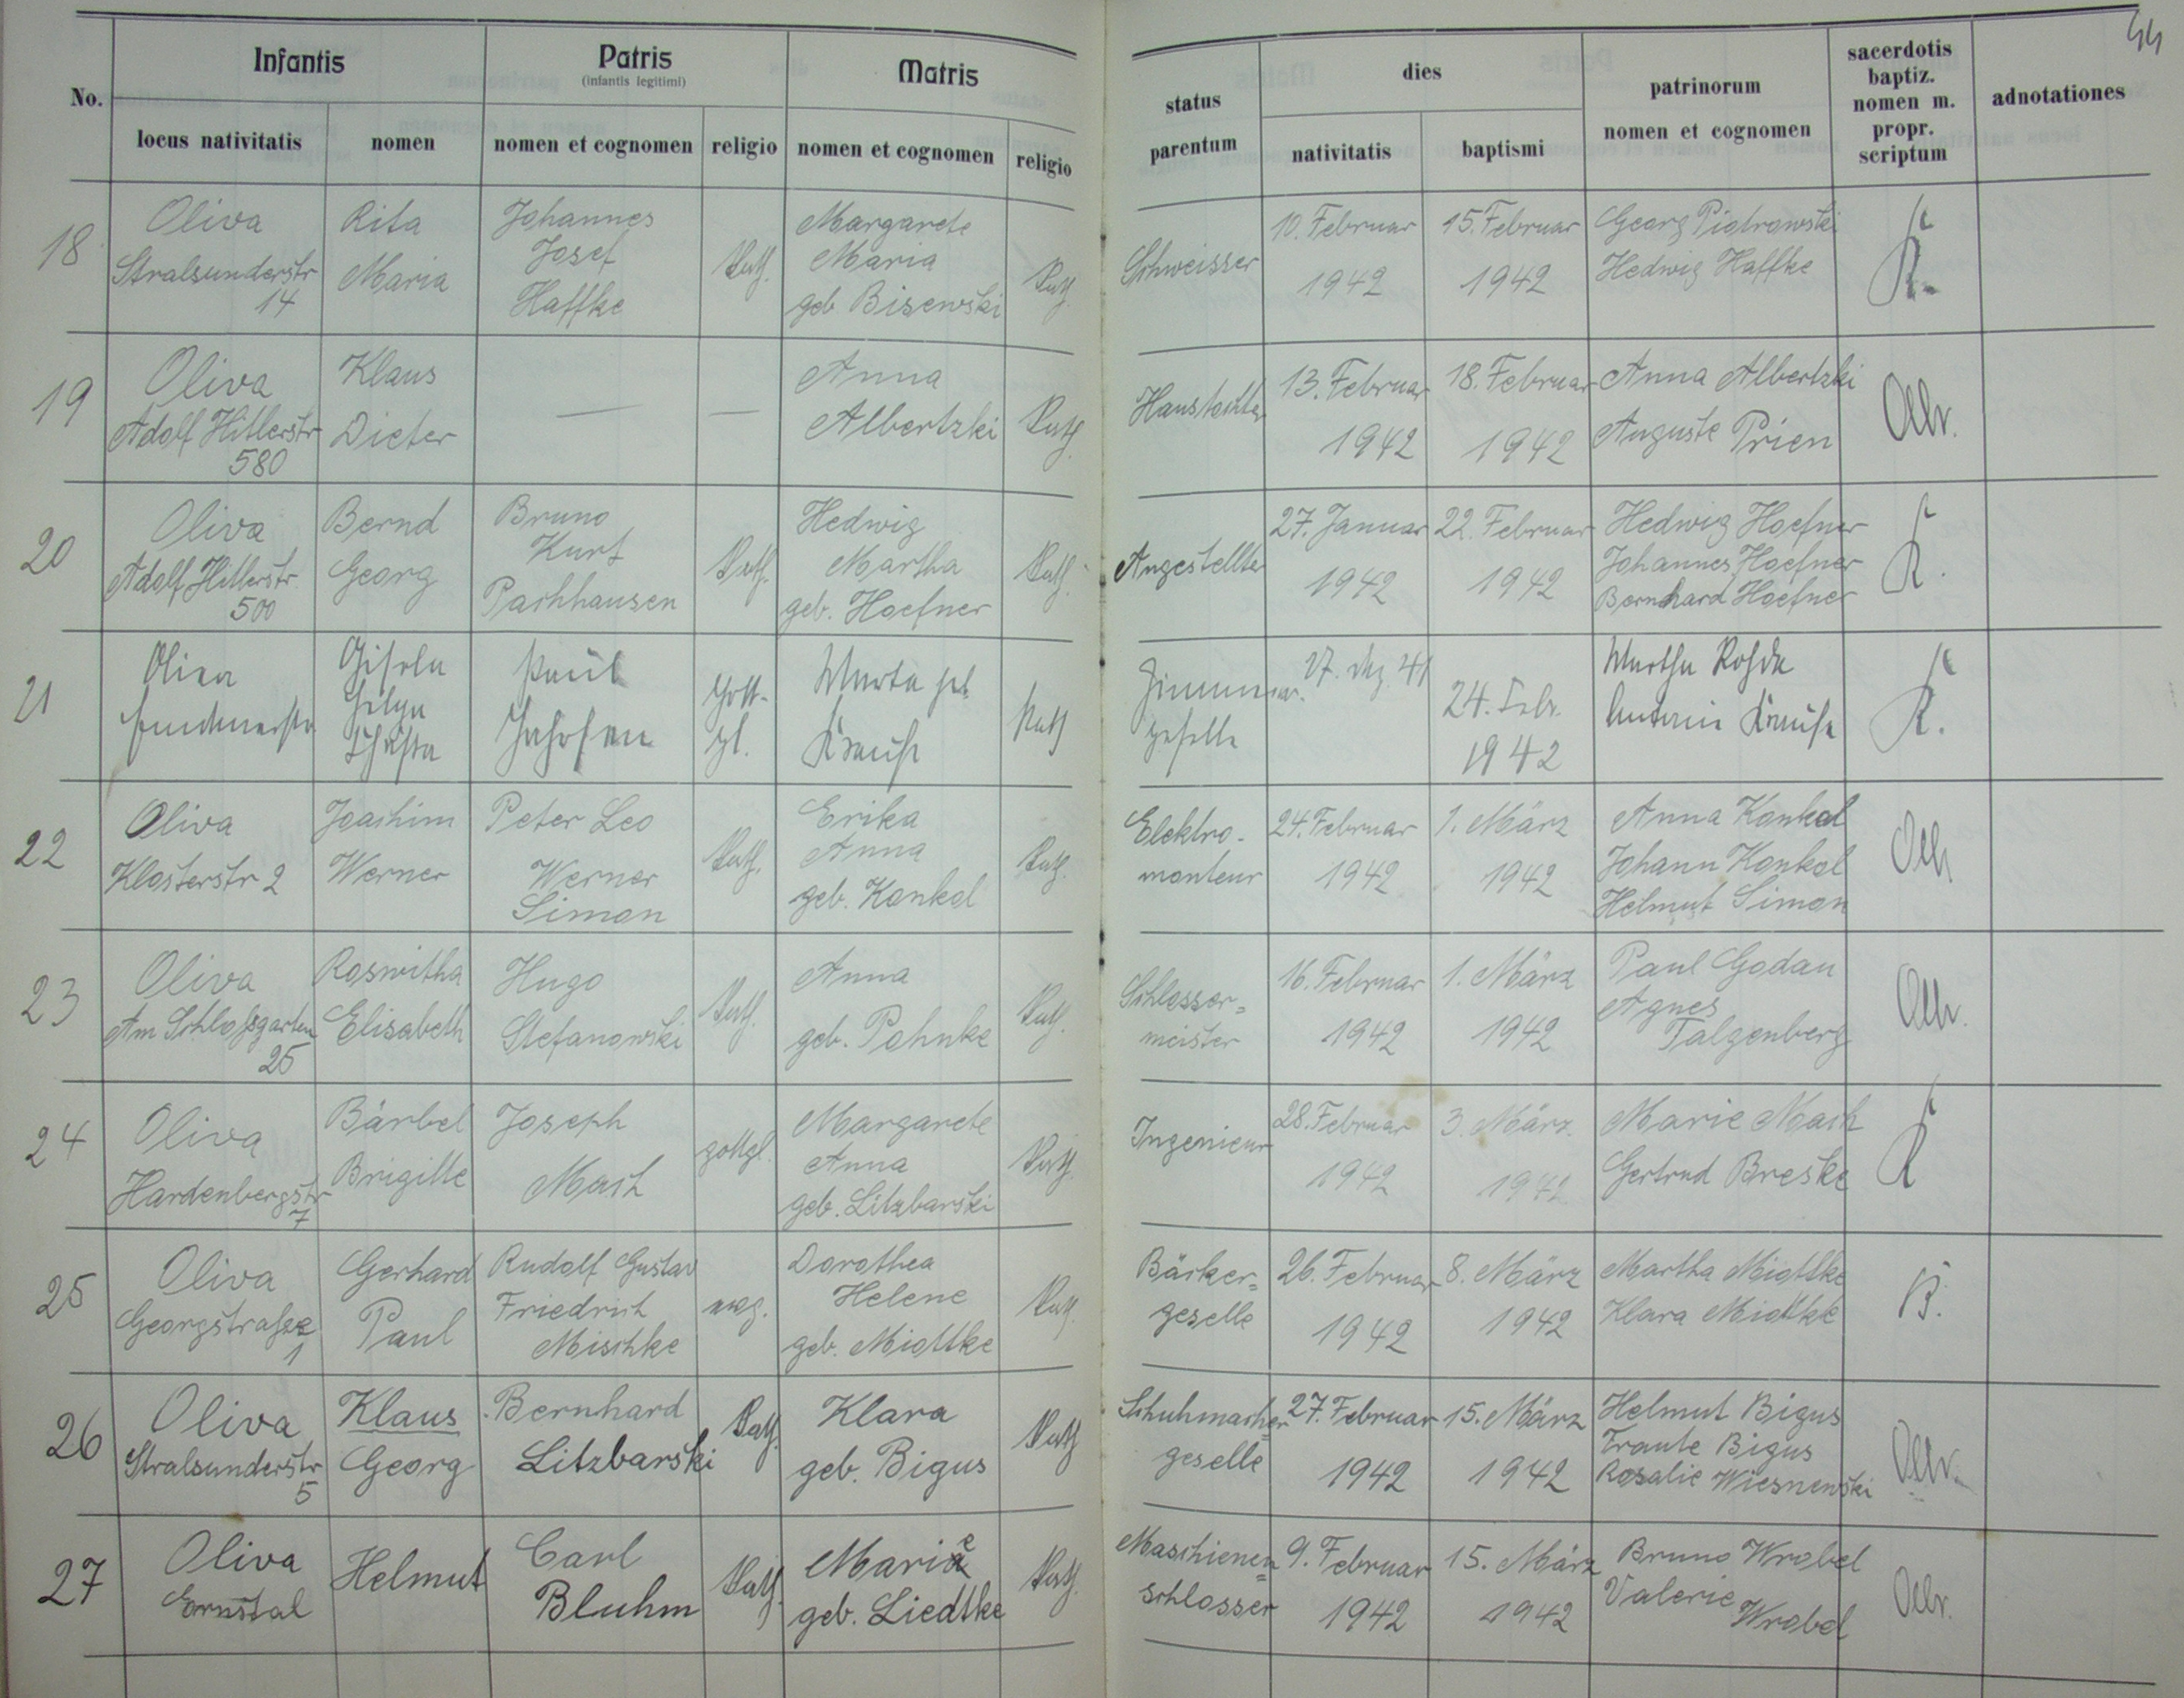 44
No.
Infantis
Patris
(infantis legitimi)
Matris
status
parentum
dies
patrinorum
nomen et cognomen
sacerdotis
baptiz.
nomen m.
propr.
scriptum
adnotationes
locus nativitatis
nomen
nomen et cognomen
religio
nomen et cognomen
religio
nativitatis
baptismi
18
Oliva
Stralsunderstr
14
Rita
Maria
Johannes
Josef
Haffke
Kath.
Margarete
Maria
geb Bisewski
Kath.
Schweisser
10. Februar
1942
15. Februar
1942
Georg Piotrowski
Hedwig Haffke
K.
19
Oliva
Adolf Hitlerstr
580
Klaus
Dieter
—
—
Anna
Albertzki
Kath.
Haustochter
13. Februar
1942
18. Februar
1942
Anna Albertzki
Auguste Prien
20
Oliva
Adolf Hitlerstr
500
Bernd
Georg
Bruno
Kurt
Pachhausen
Kath.
Hedwig
Martha
geb. Hoefner
Kath.
Angestellter
27. Januar
1942
22. Februar
1942
Hedwig Hoefner
Johannes Hoefner
Bernhard Hoefner
K.
21
Oliva
Gisela
Helga
Christa
Paul
Gott-
gl.
Marta geb
Krause
Kath
Zimmer.
geselle
27. Dez. 41
24. Febr.
1942
Martha Rohde
Antonie Krause
K.
22
Oliva
Klosterstr 2
Joachim
Werner
Peter Leo
Werner
Simon
Kath.
Erika
Anna
geb. Konkol
Kath.
Elektro-
monteur
24. Februar
1942
1. März
1942
Anna Konkol
Johann Konkol
Helmut Simon
23
Oliva
Am Schloßgarten
25
Roswitha
Elisabeth
Hugo
Stefanowski
Kath.
Anna
geb. Pohnke
Kath.
Schlosser=
meister
16. Februar
1942
1. März
1942
Paul Godau
Agnes
Falgenberg
24
Oliva
Hardenbergstr
7
Bärbel
Brigitte
Joseph
Mach
gottgl.
Margarete
Anna
geb. Litzbarski
Kath.
Ingenieur
28. Februar
1942
3. März.
1942
Marie Mach
Gertrud Breske
K
25
Oliva
Georgstraße
1
Gerhard
Paul
Rudolf Gustav
Friedrich
Mischke
Dorothea
Helene
geb. Miottke
Kath.
Bäcker=
geselle
26. Februar
1942
8. März
1942
Martha Miottke
Klara Miottke
26
Oliva
Stralsunderstr
5
Klaus
Georg
Bernhard
Litzbarski
Kath.
Klara
geb. Bigus
Kath
Schuhmacher=
geselle
27. Februar
1942
15. März
1942
Helmut Bigus
Traute Bigus
Rosalie Wiesnewski
27
Oliva
Ernstal
Helmut
Carl
Bluhm
Kath.
Marie
geb. Liedtke
Kath.
Maschienen=
schlosser
9. Februar
1942
15. März
1942
Bruno Wrobel
Valerie
Wrobel